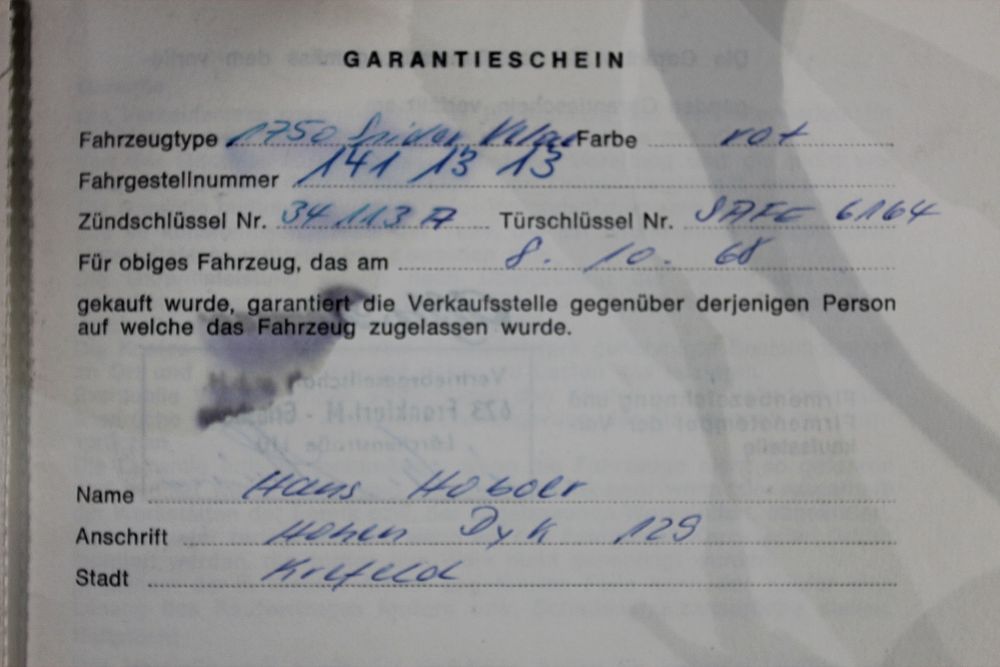 GARANTIESCHEIN
Fahrzeugtype 1750 Spider Veloce Farbe rot
Fahrgestellnummer 141 13 13
Zündschlüssel Nr. 34 113 A Türschlüssel Nr. SAFE 6164
Für obiges Fahrzeug, das am 8. 10. 68
gekauft wurde, garantiert die Verkaufsstelle gegenüber derjenigen Person
auf welche das Fahrzeug zugelassen wurde.
Name Hans
Anschrift Hohen Dyk 129
Stadt Krefeld